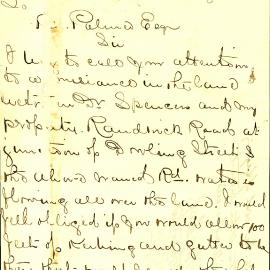 To
Palmer Esqr
Sir
I beg to call your attention
to a nuisance in the land
between Dr Spencers and my
property. Randwick Road at
junction of Dowling Street &
the above named Rd. water is
flowing all over the land. I would
feel obliged if you would allow 100
feet of kerbing and gutter to be